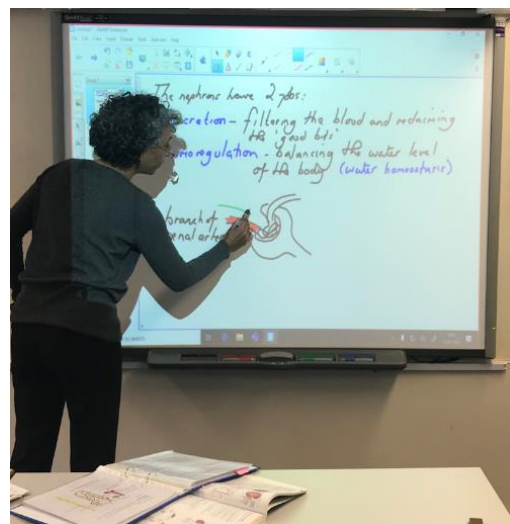 The nephrons have 2 jobs:
cretion - filtering the blood and retaining
the 'good bits'
moregulation - balancing the water level
of the body (water homeostasis)
branch of
renal arte